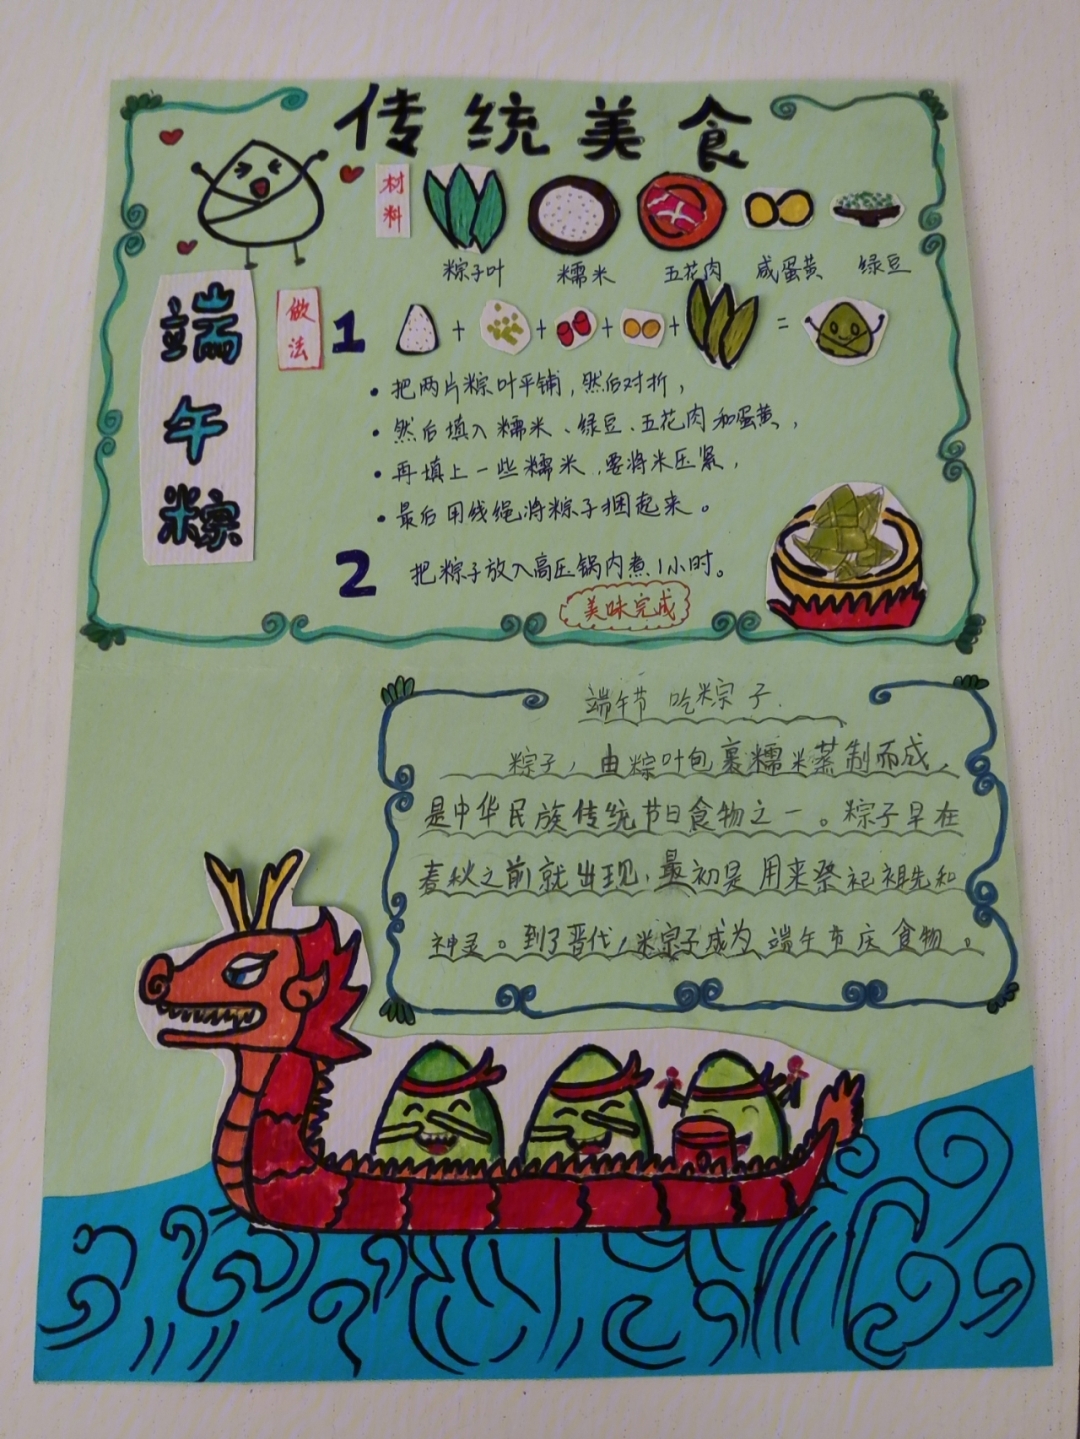 传统美食
材料
粽子叶 糯米 五花肉 咸蛋黄 绿豆
端午粽
做法
1
+ + + + =
• 把两片粽叶平铺,然后对折,
• 然后填入糯米、绿豆、五花肉和蛋黄,
• 再填上一些糯米,要将米压紧,
• 最后用线绳将粽子捆起来。
2 把粽子放入高压锅内煮1小时。
美味完成
端午节吃粽子.
粽子,由粽叶包裹糯米蒸制而成,
是中华民族传统节日食物之一。粽子早在
春秋之前就出现,最初是用来祭祀祖先和
神灵。到了晋代,粽子成为端午节庆食物。